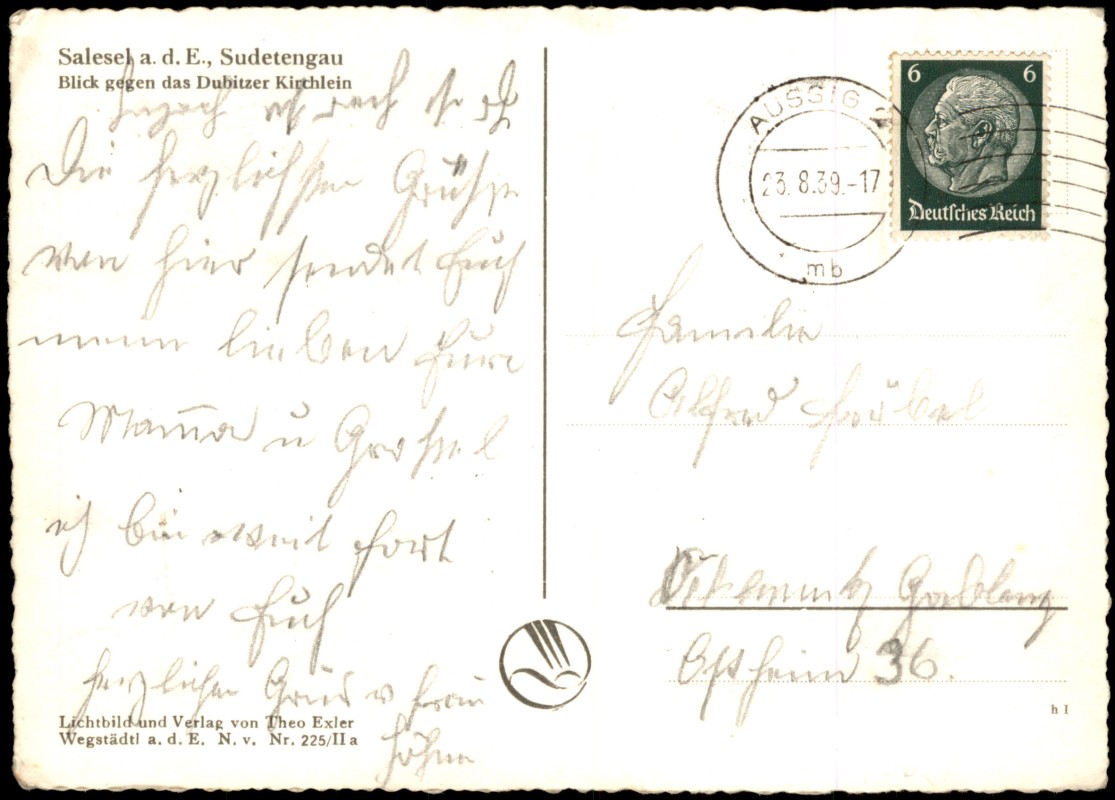 Salesel a. d. E., Sudetengau
Blick gegen das Dubitzer Kirchlein
Die herzlichsten Grüße
von hier sendet Euch
meine lieben Eure
Mamma u
ich bin weit fort
von Euch
herzlichen Gruß v Frau
Lichtbild und Verlag von Theo Exler
Wegstädtl a. d. E. N. v. Nr. 225/II a
AUSSIG 2
23.8.39.-17
mb
6 6
Deutsches Reich
Familie
Alfred
Gablonz
36.
h I